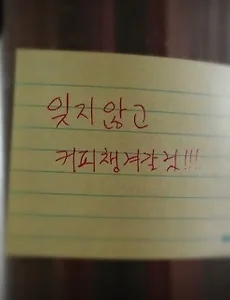 잊지 않고
커피 챙겨갈 것!!!